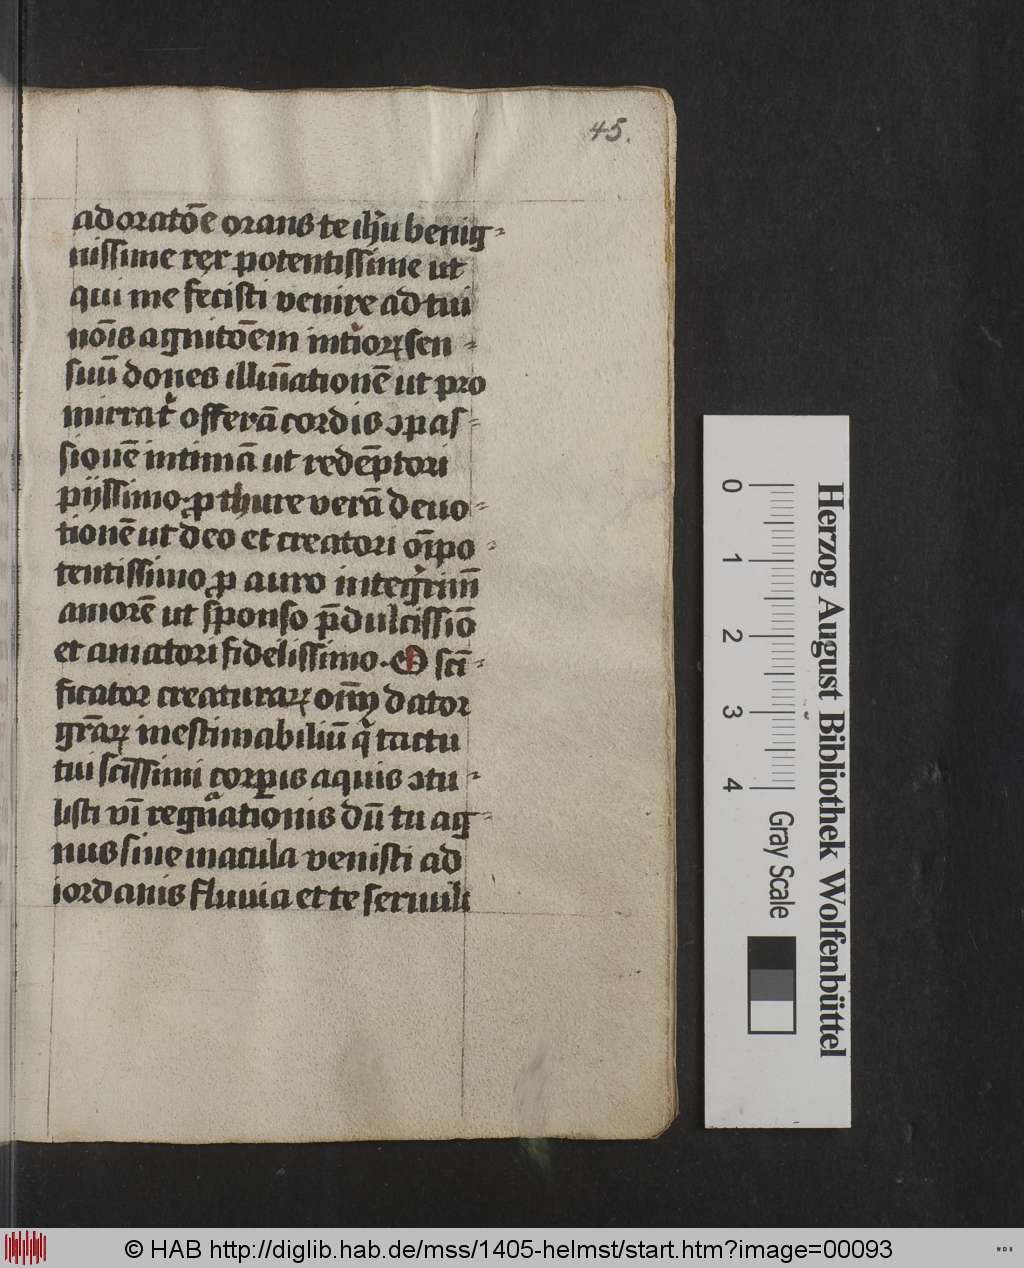 45.
adoratōe orans te ih̄u benig-
nissime rex potentissime ut
qui me fecisti venire ad tui
nōis agnitōem int'ioꝝ sen-
suū dones illūīationē ut pro
mirrat' offerā cordis ɔpas-
sionē intimā ut redēptori
pijssimo. ꝓ thure verā deuo-
tionē ut deo et creatori oīpo-
tentissimo ꝓ auro integ'rimū
amorē ut sponso p̄dulcissiō
et amatori fidelissimo. O scī-
ficator creaturaꝝ oīm dator
grāꝝ inestimabiliū q' tactu
tui scīssimi corꝑis aquis ɔtu-
listi vī regn̄ationis dū tu ag-
nus sine macula venisti ad
iordanis fluuia et te seruili
0 1 2 3 4
Gray Scale
Herzog August Bibliothek Wolfenbüttel
© HAB http://diglib.hab.de/mss/1405-helmst/start.htm?image=00093